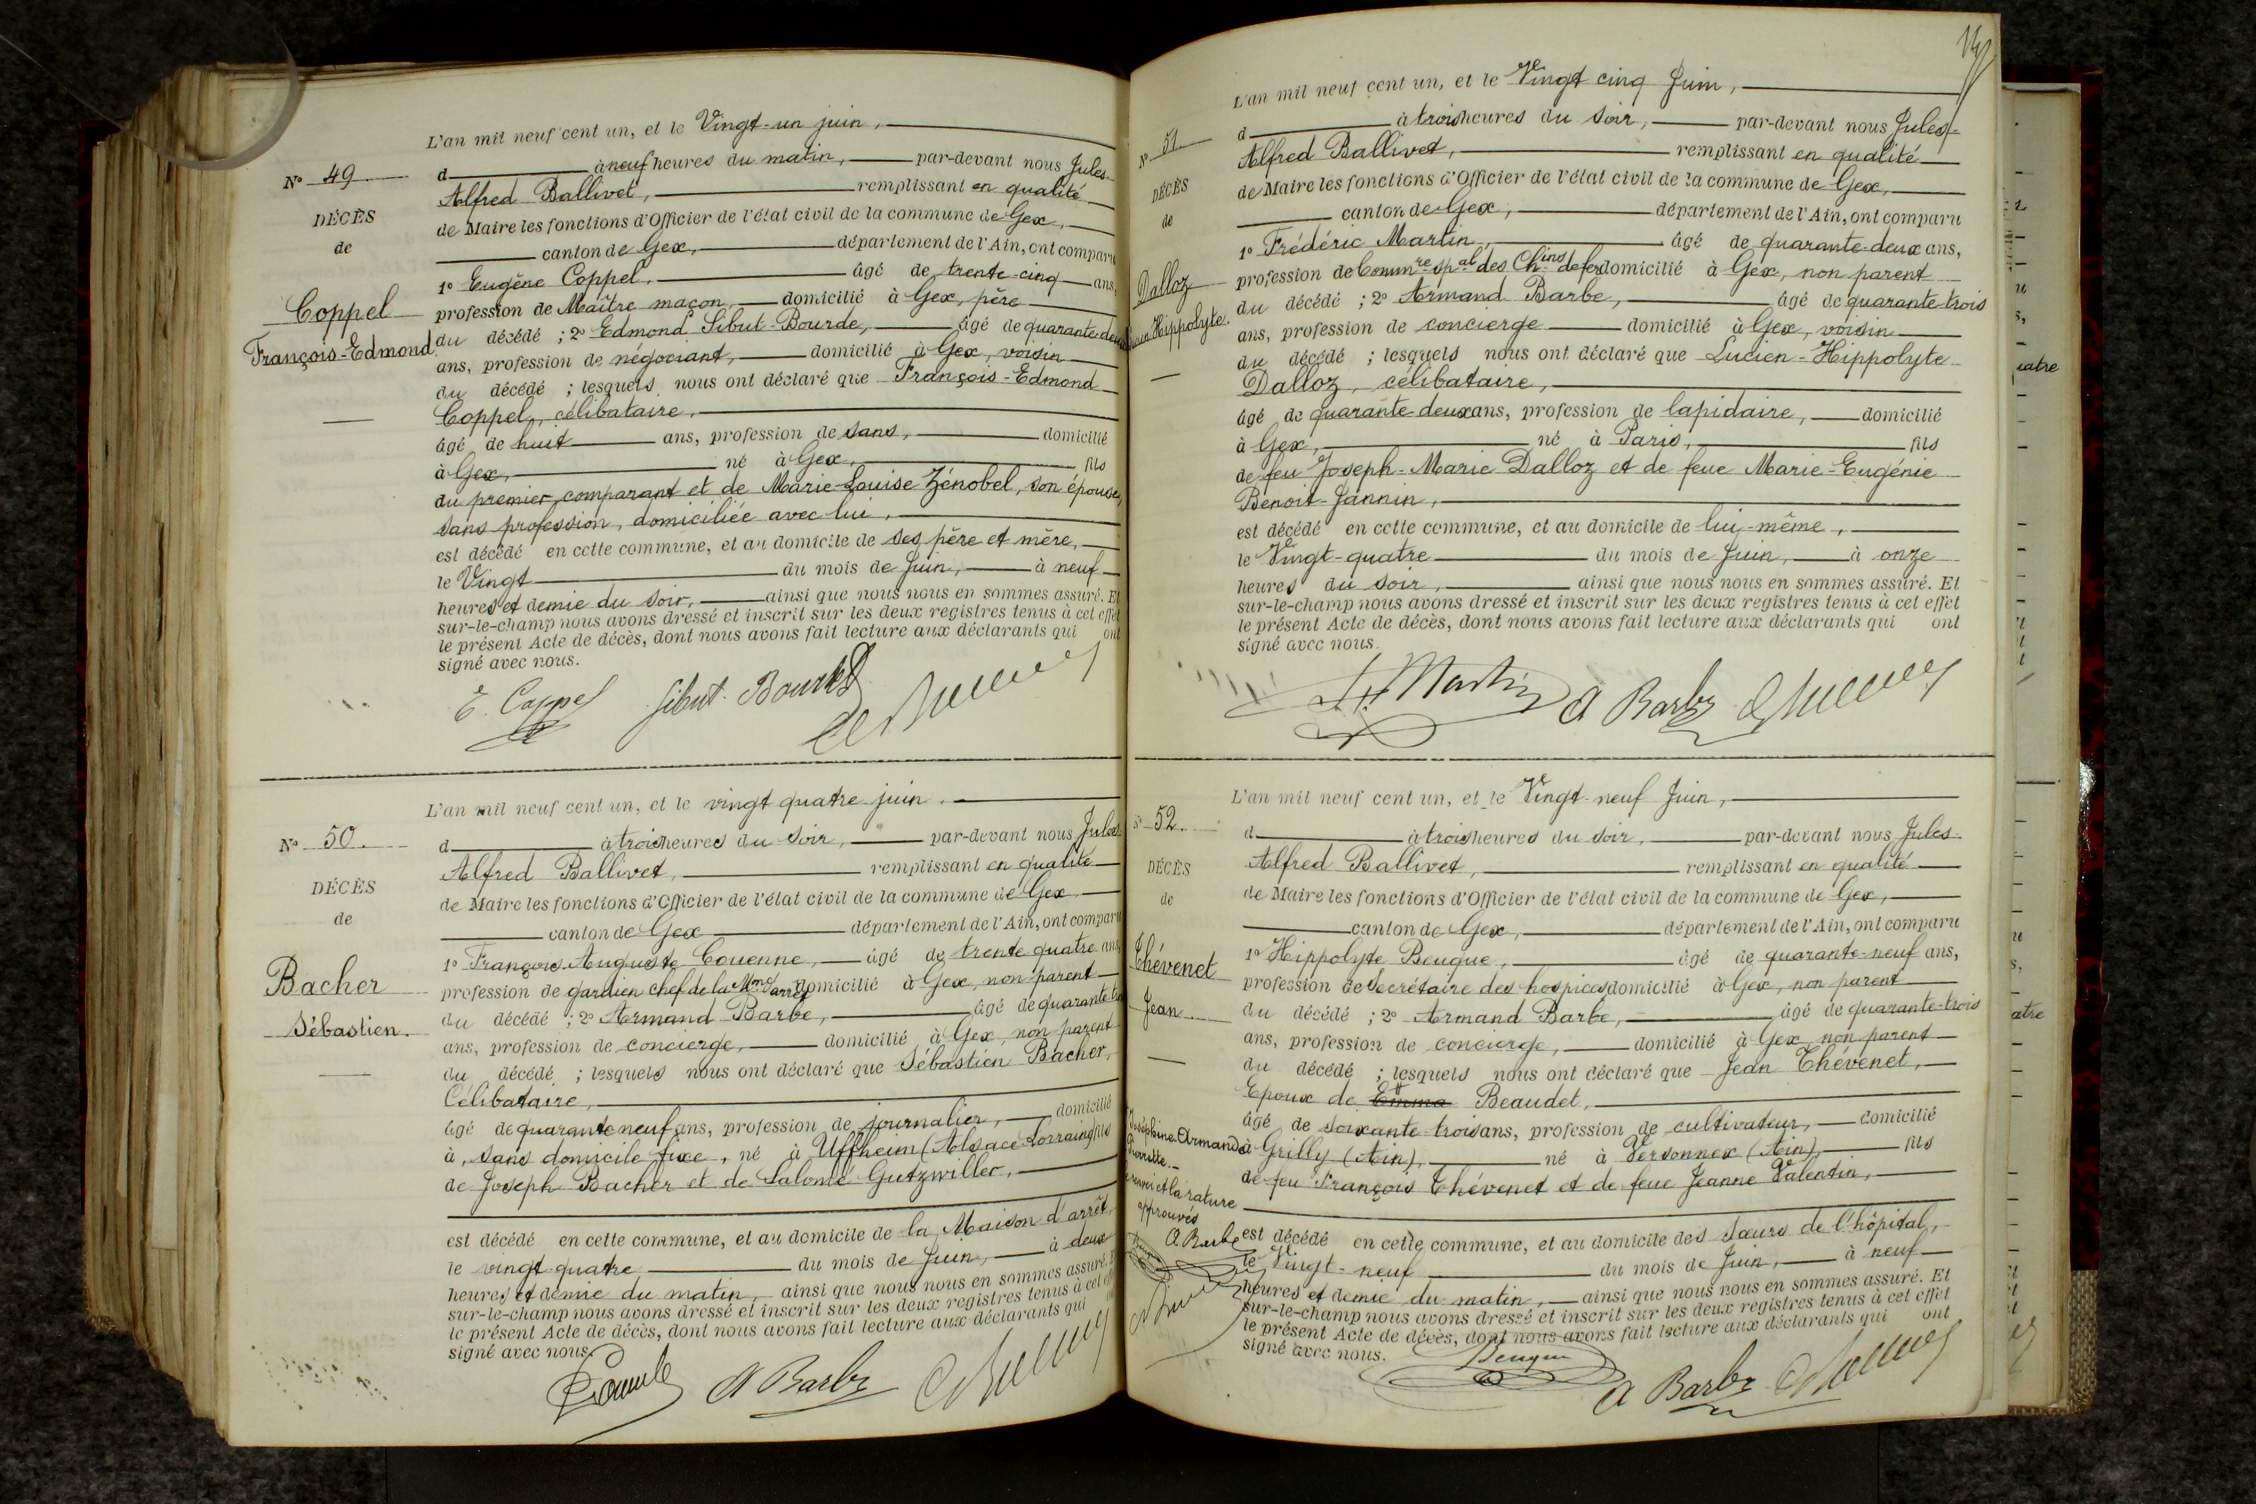 L'an mil neuf cent un, et le Vingt-un juin,
N° 49
d à neuf heures du matin, par-devant nous Jules-
Alfred Ballivet, remplissant en qualité
DÉCÈS
de Maire les fonctions d'Officier de l'état civil de la commune de Gex,
de
canton de Gex, département de l'Ain, ont comparu
1° Eugène Coppel, âgé de trente-cinq ans,
Coppel
profession de Maître maçon, domicilié à Gex, père
François-Edmond
du décédé ; 2° Edmond Sibut-Bourde, âgé de quarante-deux
ans, profession de négociant, domicilié à Gex, voisin
du décédé ; lesquels nous ont déclaré que François-Edmond
Coppel, célibataire,
âgé de huit ans, profession de sans, domicilié
à Gex, né à Gex, fils
du premier comparant et de Marie-Louise Zénobel, son épouse,
sans profession, domiciliée avec lui,
est décédé en cette commune, et au domicile de ses père et mère,
le Vingt du mois de Juin, à neuf
heures et demie du soir, ainsi que nous nous en sommes assuré. Et
sur-le-champ nous avons dressé et inscrit sur les deux registres tenus à cet effet
le présent Acte de décès, dont nous avons fait lecture aux déclarants qui ont
signé avec nous.
E. Coppel Sibut-Bourde
L'an mil neuf cent un, et le vingt quatre juin.
N° 50.
d à trois heures du soir, par-devant nous Jules
Alfred Ballivet, remplissant en qualité
DÉCÈS
de Maire les fonctions d'Officier de l'état civil de la commune de Gex
de
canton de Gex département de l'Ain, ont comparu
1° François Auguste Couenne, âgé de trente quatre ans
Bacher
profession de gardien chef de la Mon d'arrêt domicilié à Gex, non parent
Sébastien.
du décédé ; 2° Armand Barbe, âgé de quarante
ans, profession de concierge, domicilié à Gex, non parent
du décédé ; lesquels nous ont déclaré que Sébastien Bacher,
Célibataire,
âgé de quarante neuf ans, profession de journalier, domicilié
à, sans domicile fixe, né à Uffheim (Alsace-Lorraine) fils
de Joseph Bacher et de Salomé Gutzwiller,
est décédé en cette commune, et au domicile de la Maison d'arrêt,
le vingt quatre du mois de Juin, à deux
heures et demie du matin, ainsi que nous nous en sommes assuré.
sur-le-champ nous avons dressé et inscrit sur les deux registres tenus à cet
le présent Acte de décès, dont nous avons fait lecture aux déclarants qui
signé avec nous.
A Barbe
L'an mil neuf cent un, et le Vingt cinq Juin,
N° 51
d à trois heures du soir, par-devant nous Jules-
Alfred Ballivet, remplissant en qualité
DÉCÈS
de Maire les fonctions d'Officier de l'état civil de la commune de Gex,
de
canton de Gex, département de l'Ain, ont comparu
1° Frédéric Martin, âgé de quarante-deux ans,
Dalloz
profession de Commre spal des Chins de fer domicilié à Gex, non parent
Hippolyte.
du décédé ; 2° Armand Barbe, âgé de quarante-trois
ans, profession de concierge domicilié à Gex, voisin
du décédé ; lesquels nous ont déclaré que Lucien-Hippolyte
Dalloz, célibataire,
âgé de quarante-deux ans, profession de lapidaire, domicilié
à Gex, né à Paris, fils
de feu Joseph-Marie Dalloz et de feue Marie-Eugénie
Benoit-Jannin,
est décédé en cette commune, et au domicile de lui-même,
le Vingt-quatre du mois de Juin, à onze
heures du soir, ainsi que nous nous en sommes assuré. Et
sur-le-champ nous avons dressé et inscrit sur les deux registres tenus à cet effet
le présent Acte de décès, dont nous avons fait lecture aux déclarants qui ont
signé avec nous.
Martin A Barbe
L'an mil neuf cent un, et le Vingt-neuf Juin,
52.
d à trois heures du soir, par-devant nous Jules-
Alfred Ballivet, remplissant en qualité
DÉCÈS
de Maire les fonctions d'Officier de l'état civil de la commune de Gex,
de
canton de Gex, département de l'Ain, ont comparu
1° Hippolyte Beuque, âgé de quarante-neuf ans,
Thévenet
profession de Secrétaire des hospices domicilié à Gex, non parent
Jean
du décédé ; 2° Armand Barbe, âgé de quarante-trois
ans, profession de concierge, domicilié à Gex, non parent
du décédé ; lesquels nous ont déclaré que Jean Thévenet,
Epoux de Emma Beaudet,
âgé de soixante-trois ans, profession de cultivateur, domicilié
Joséphine-Armande
à Grilly (Ain), né à Versonnex (Ain), fils
de feu François Thévenet et de feue Jeanne Valentin,
et la rature
approuvés
A Barbe
est décédé en cette commune, et au domicile des Sœurs de l'hôpital,
le Vingt-neuf du mois de Juin, à neuf
heures et demie du matin, ainsi que nous nous en sommes assuré. Et
sur-le-champ nous avons dressé et inscrit sur les deux registres tenus à cet effet
le présent Acte de décès, dont nous avons fait lecture aux déclarants qui ont
signé avec nous.
Beuque A Barbe